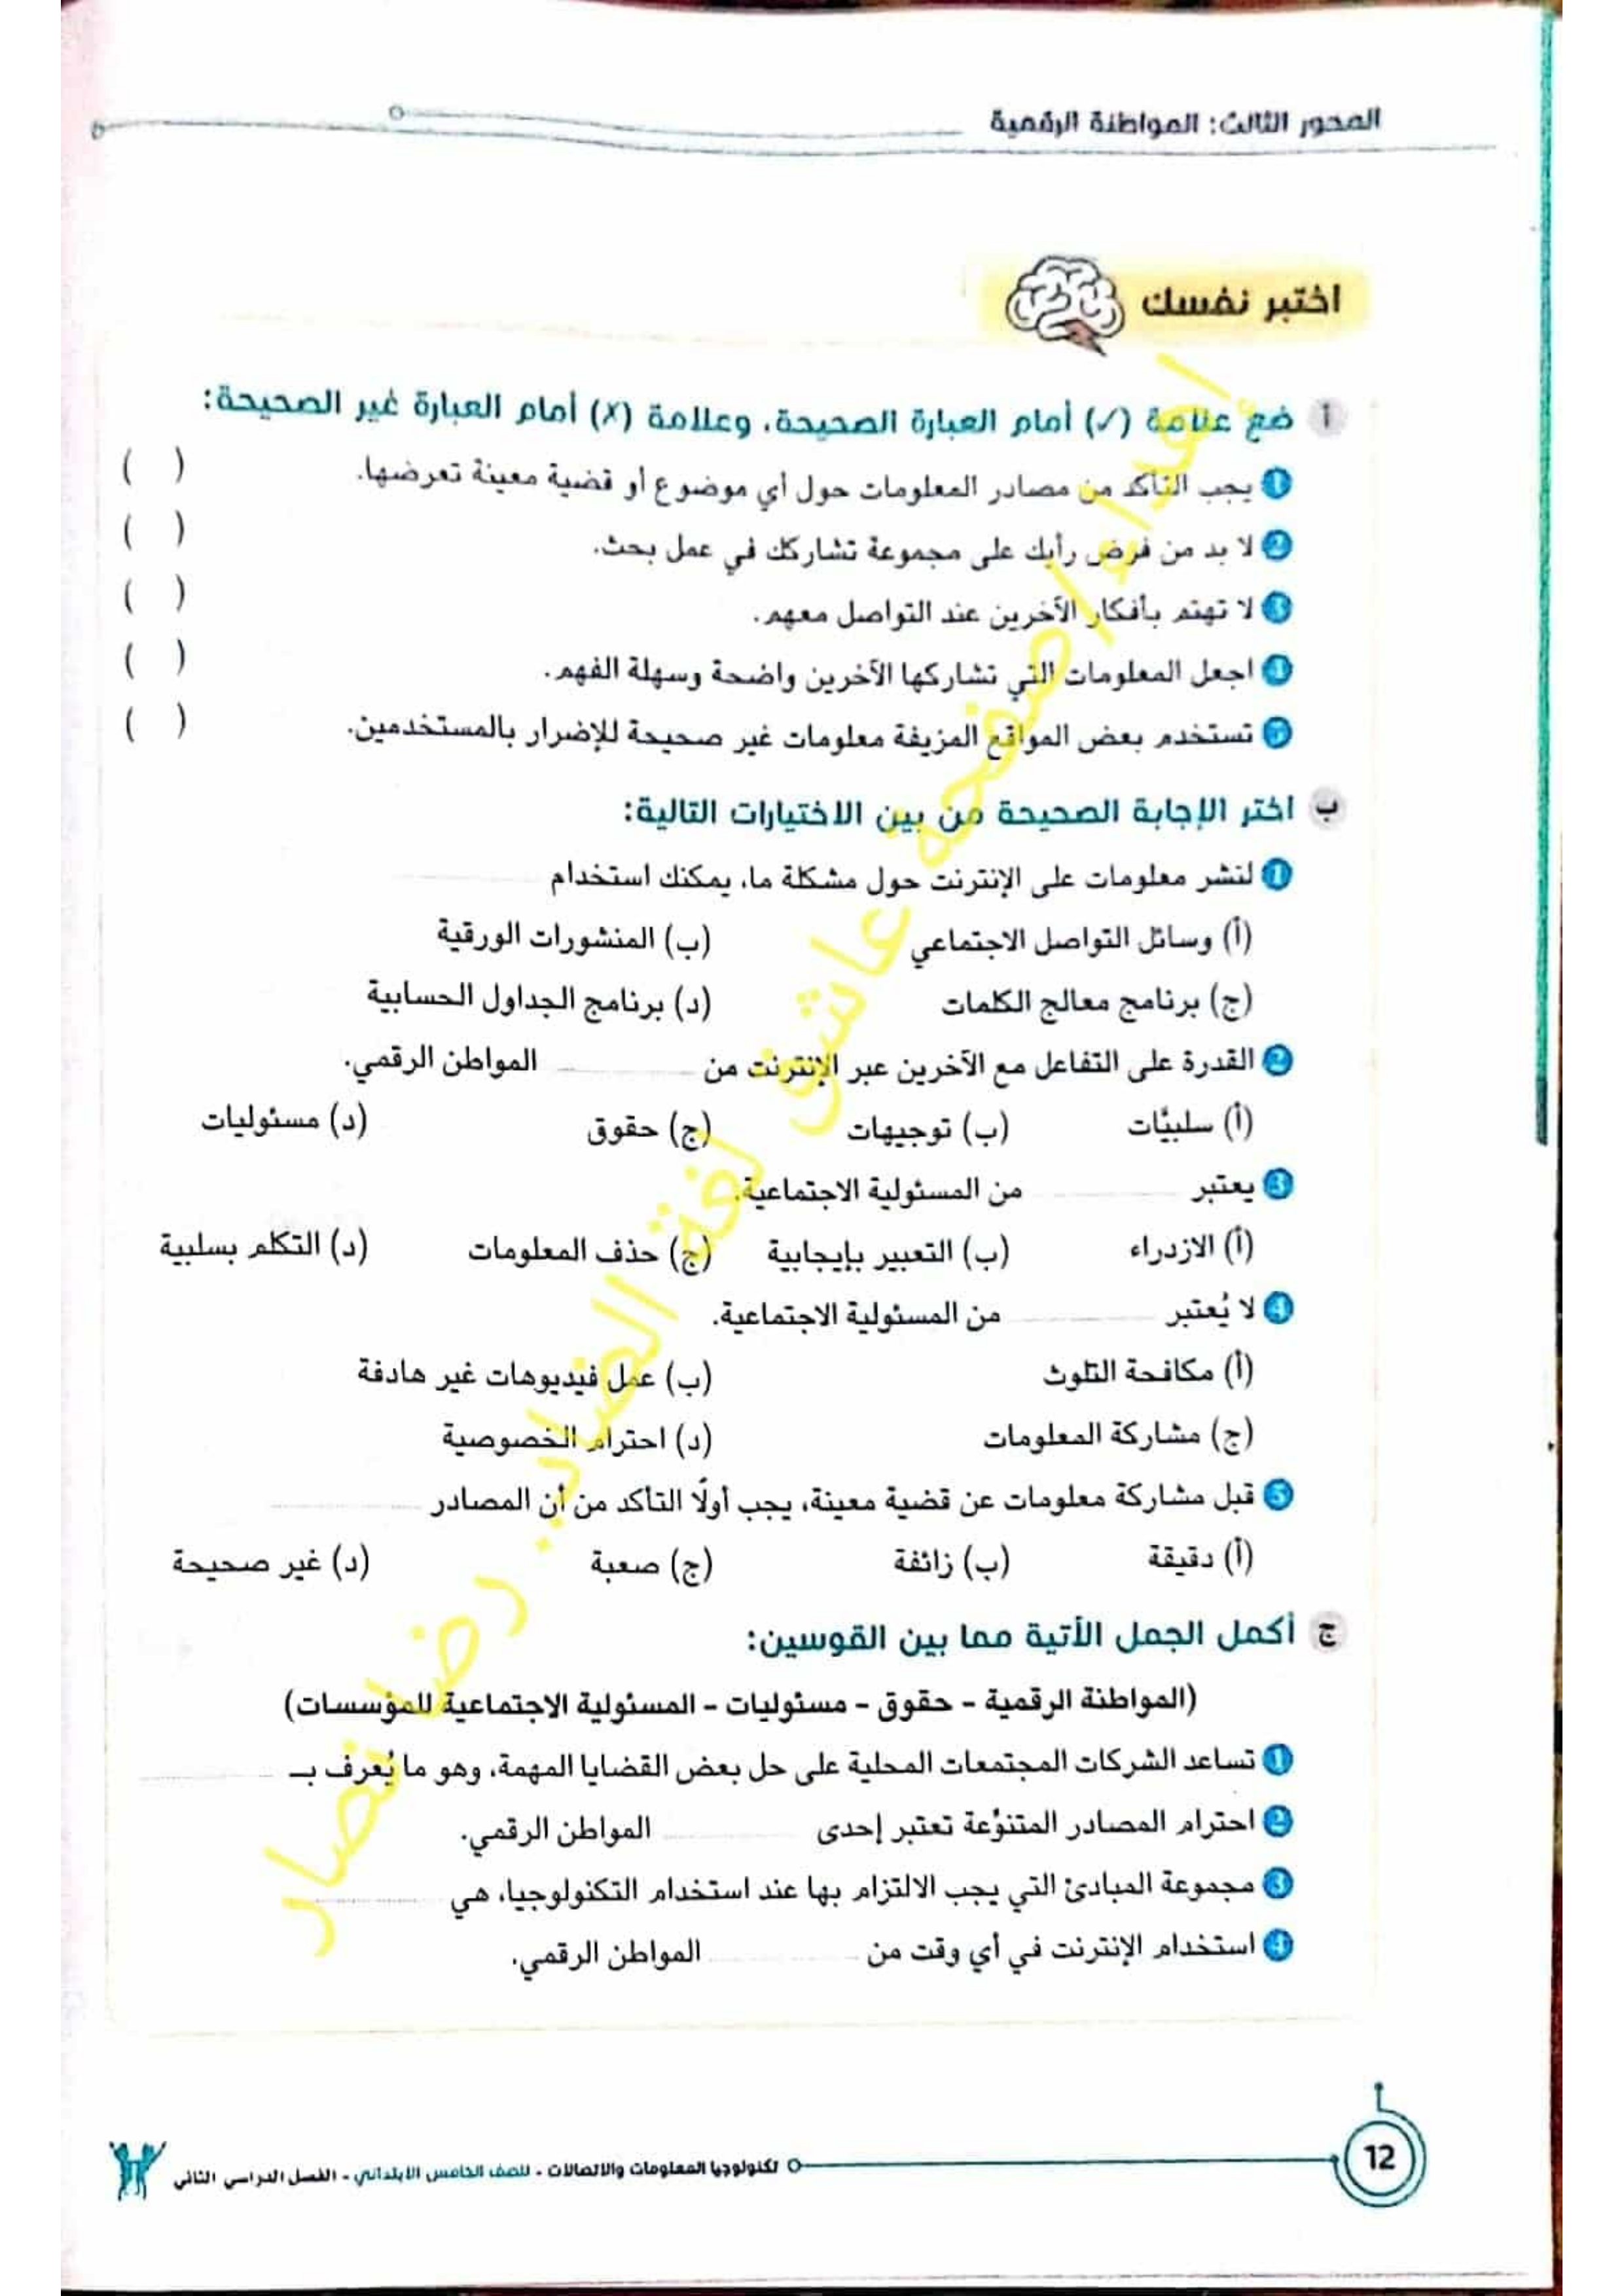 المحور الثالث: المواطنة الرقمية
اختبر نفسك
أ ضع علامة (✓) أمام العبارة الصحيحة، وعلامة (✗) أمام العبارة غير الصحيحة:
1 يجب التأكد من مصادر المعلومات حول أي موضوع أو قضية معينة تعرضها. ( )
2 لا بد من فرض رأيك على مجموعة تشاركك في عمل بحث. ( )
3 لا تهتم بأفكار الآخرين عند التواصل معهم. ( )
4 اجعل المعلومات التي تشاركها الآخرين واضحة وسهلة الفهم. ( )
5 تستخدم بعض المواقع المزيفة معلومات غير صحيحة للإضرار بالمستخدمين. ( )
ب اختر الإجابة الصحيحة من بين الاختيارات التالية:
1 لنشر معلومات على الإنترنت حول مشكلة ما، يمكنك استخدام
(أ) وسائل التواصل الاجتماعي (ب) المنشورات الورقية
(ج) برنامج معالج الكلمات (د) برنامج الجداول الحسابية
2 القدرة على التفاعل مع الآخرين عبر الإنترنت من المواطن الرقمي.
(أ) سلبيَّات (ب) توجيهات (ج) حقوق (د) مسئوليات
3 يعتبر من المسئولية الاجتماعية.
(أ) الازدراء (ب) التعبير بإيجابية (ج) حذف المعلومات (د) التكلم بسلبية
4 لا يُعتبر من المسئولية الاجتماعية.
(أ) مكافحة التلوث (ب) عمل فيديوهات غير هادفة
(ج) مشاركة المعلومات (د) احترام الخصوصية
5 قبل مشاركة معلومات عن قضية معينة، يجب أولًا التأكد من أن المصادر
(أ) دقيقة (ب) زائفة (ج) صعبة (د) غير صحيحة
ج أكمل الجمل الأتية مما بين القوسين:
(المواطنة الرقمية - حقوق - مسئوليات - المسئولية الاجتماعية للمؤسسات)
1 تساعد الشركات المجتمعات المحلية على حل بعض القضايا المهمة، وهو ما يُعرف بـ
2 احترام المصادر المتنوِّعة تعتبر إحدى المواطن الرقمي.
3 مجموعة المبادئ التي يجب الالتزام بها عند استخدام التكنولوجيا، هي
4 استخدام الإنترنت في أي وقت من المواطن الرقمي.
إهداء/صفحة عاشق لغة الضاد.. رضا نصار
12
تكنولوجيا المعلومات والاتصالات - للصف الخامس الابتدائي - الفصل الدراسي الثاني